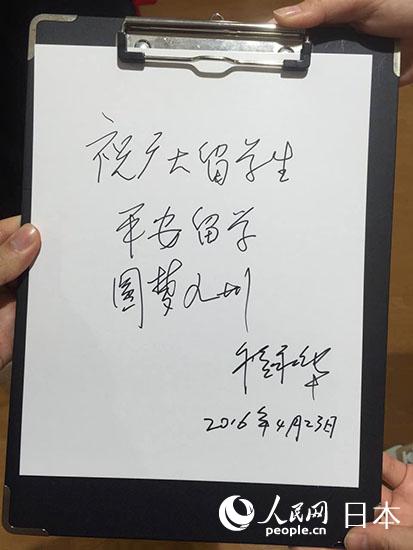 祝广大留学生
平安留学
圆梦人圳
程永华
2016年4月23日
人民网 日本
people.cn